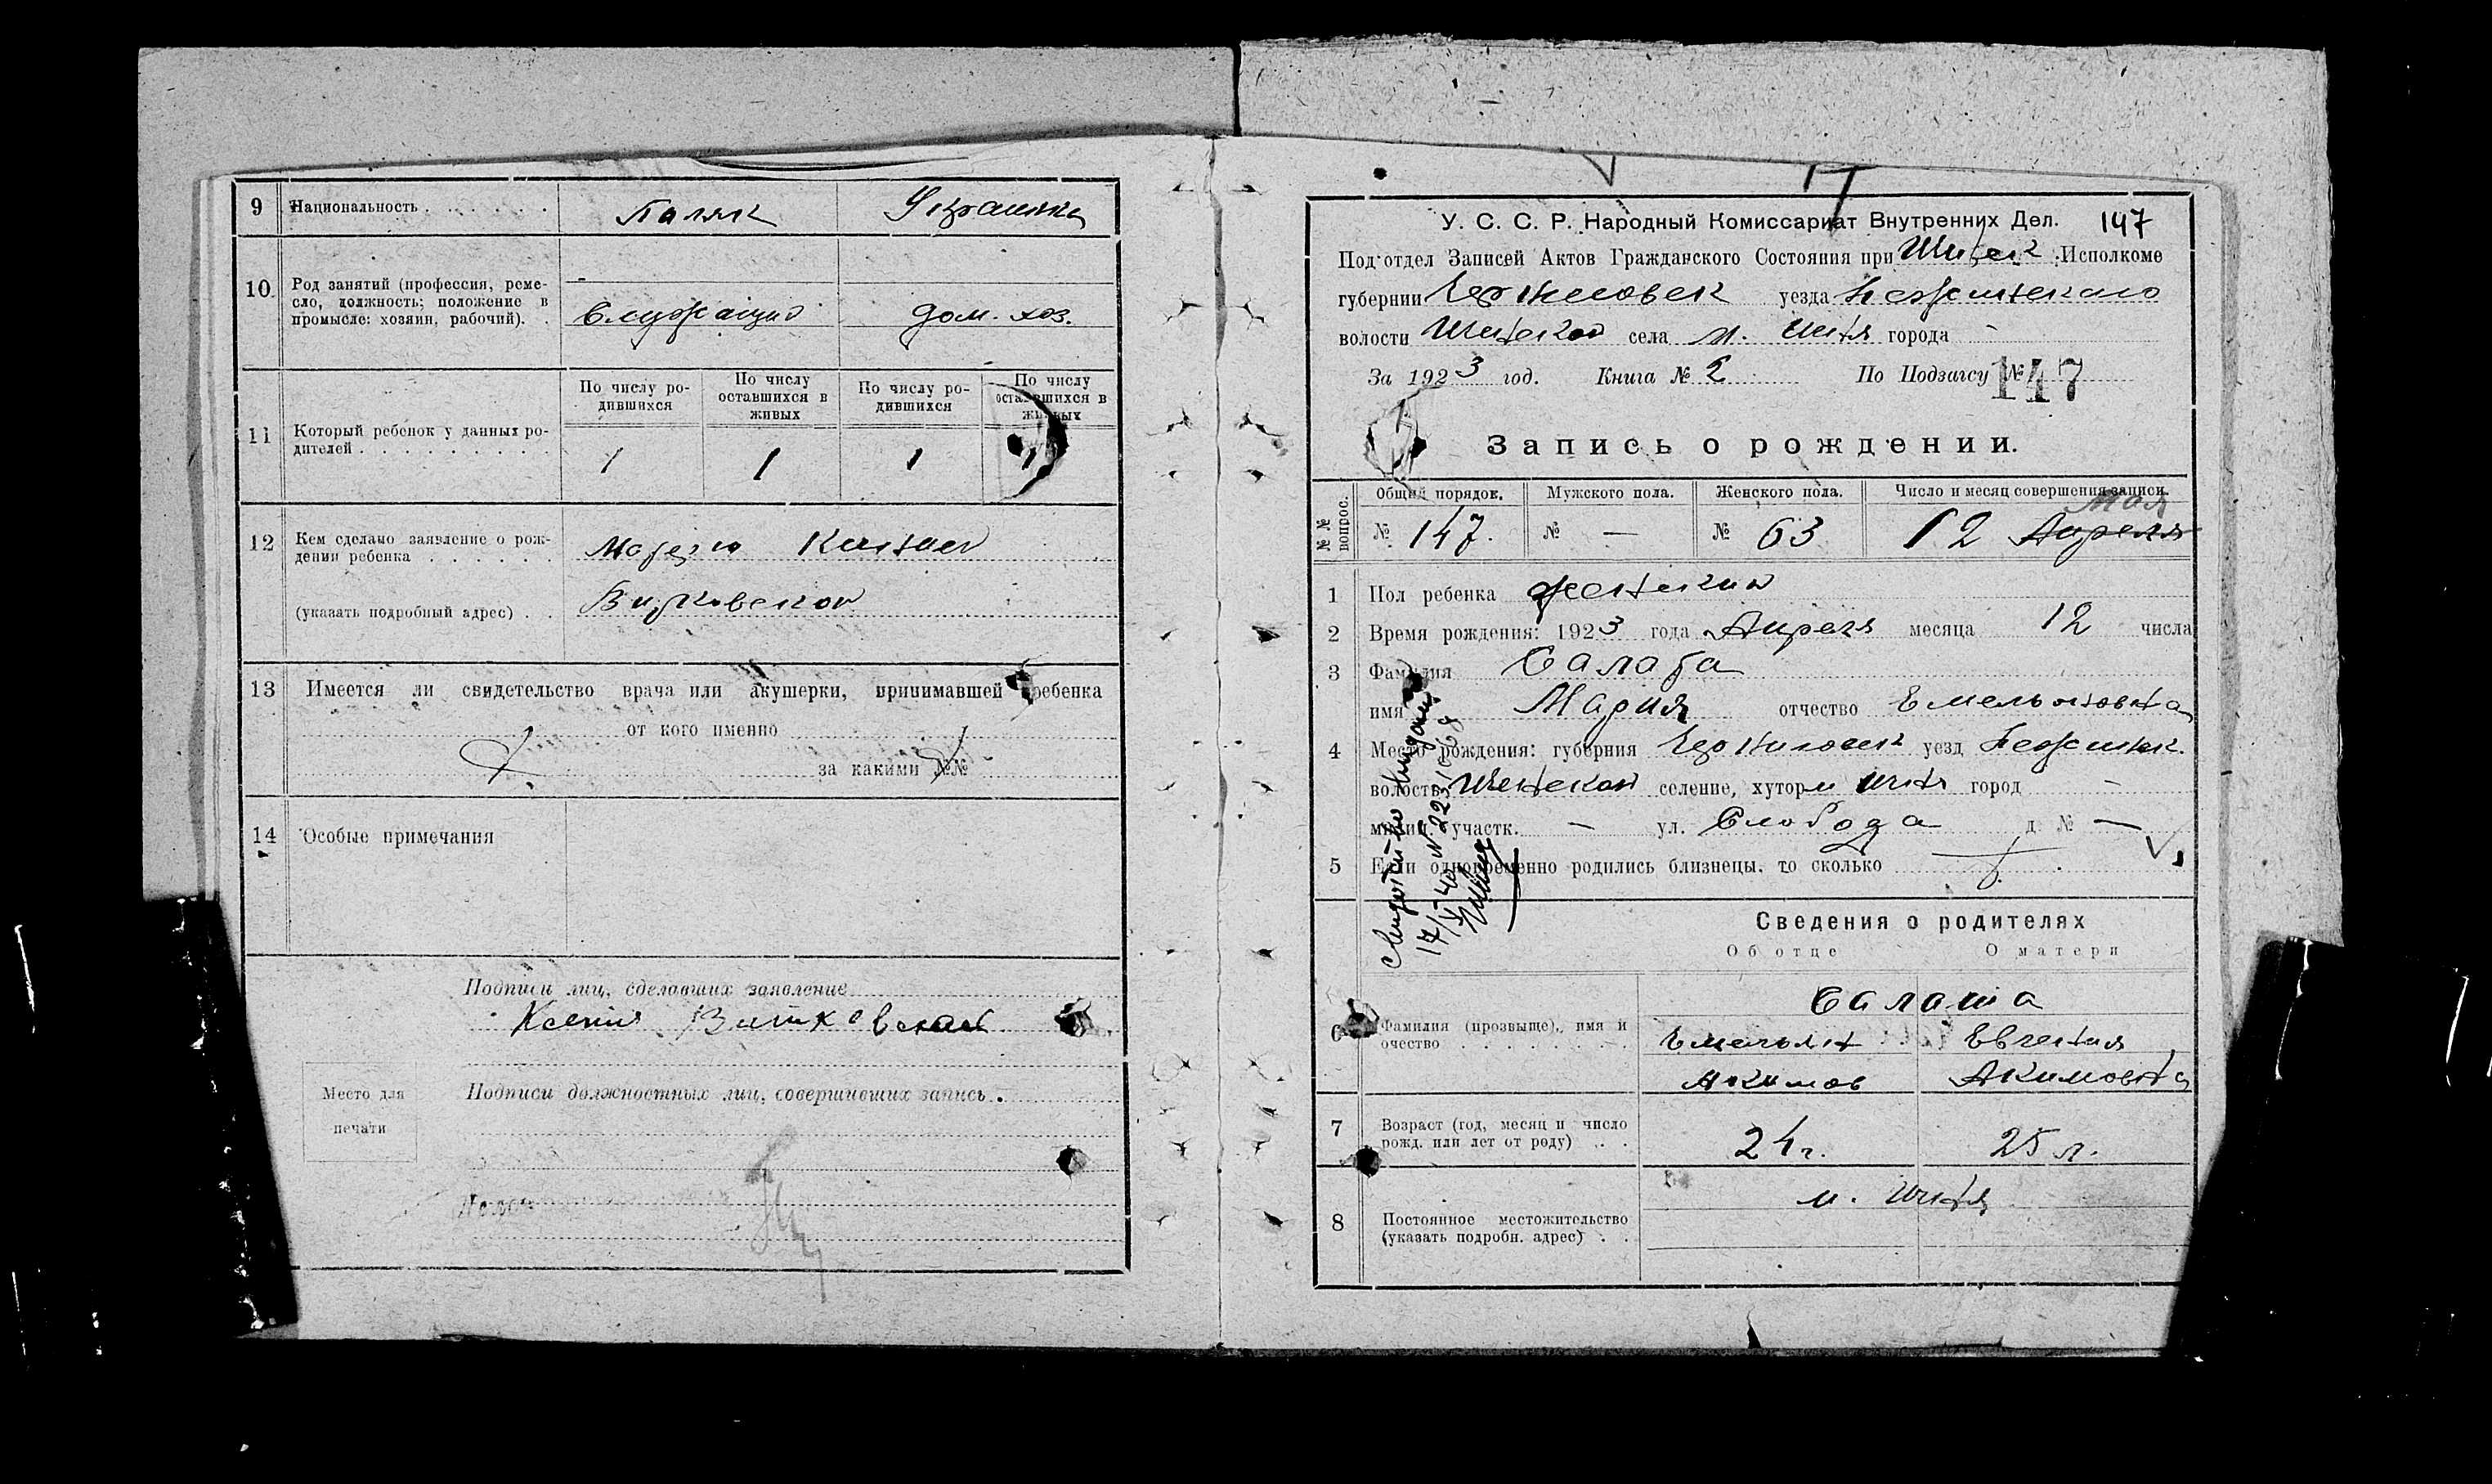 9 Национальность Поляк Украинка
10 Род занятий (профессия, реме-
сло, должность; положение в
промысле: хозяин, рабочий).
Служащий дом. хоз.
11 Который ребенок у данных ро-
дителей
По числу ро-
дившихся
По числу
оставшихся в
живых
По числу ро-
дившихся
По числу
оставшихся в
живых
1 1 1 1
12 Кем сделано заявление о рож-
дении ребенка
(указать подробный адрес)
13 Имеется ли свидетельство врача или акушерки, принимавшей ребенка
от кого именно
за какими №№
14 Особые примечания
Подписи лиц, сделавших заявление
Ксения Витковская
Место для
печати
Подписи должностных лиц, совершивших запись.
У. С. С. Р. Народный Комиссариат Внутренних Дел. 147
Под‘отдел Записей Актов Гражданского Состояния при Исполкоме
губернии уезда
волости села м. города -
За 1923 год. Книга № 2 По Подзагсу № 147
Запись о рождении.
№ № вопрос.
Общий порядок. Мужского пола. Женского пола. Число и месяц совершения записи.
Мая
№ 147. № — № 63 12 Апреля
1 Пол ребенка женский
2 Время рождения: 1923 года Апреля месяца 12 числа
3 Фамилия
имя Мария отчество Емельяновна
4 Место рождения: губерния уезд
волость селение, хутор город —
милиц. участк. — ул. Слобода д. № —
5 Если одновременно родились близнецы, то сколько
17/V-40
Сведения о родителях
Об отце О матери
6 Фамилия (прозвыще), имя и
очество
Салата
Емельян Евгения
Акимов Акимовна
7 Возраст (год, месяц и число
рожд. или лет от роду)
24 г. 25 л.
8 Постоянное местожительство
(указать подробн. адрес)